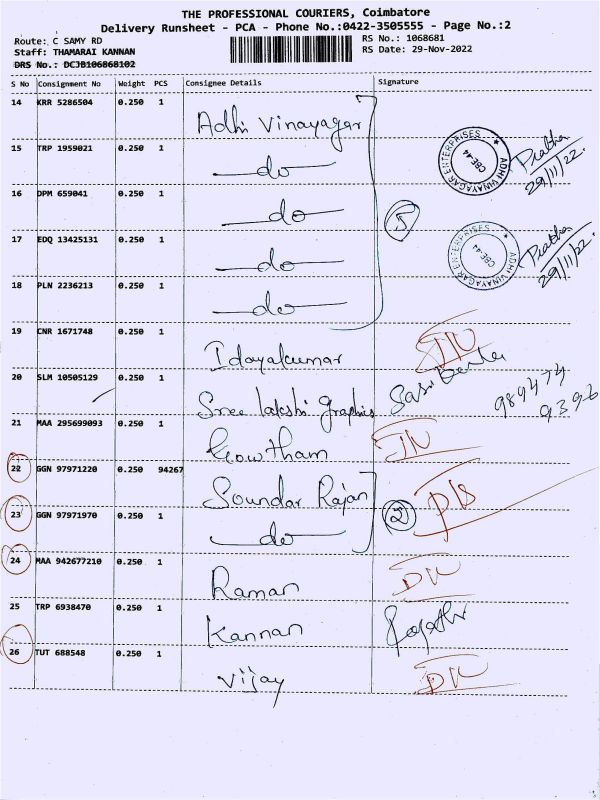 THE PROFESSIONAL COURIERS, Coimbatore
Delivery Runsheet - PCA - Phone No.:0422-3505555 - Page No.:2
Route: C SAMY RD RS No.: 1068681
Staff: THAMARAI KANNAN RS Date: 29-Nov-2022
DRS No.: DCJB106868102
S No Consignment No Weight PCS Consignee Details Signature
14 KRR 5286504 0.250 1 Adhi Vinayagar
15 TRP 1959021 0.250 1 do
ADHI VINAYAGAR ENTERPRISES CBE-44 Prabha 29/11/22.
16 DPM 659041 0.250 1 do
5
17 EDQ 13425131 0.250 1 do
ADHI VINAYAGAR ENTERPRISES CBE-44 Prabha 29/11/22.
18 PLN 2236213 0.250 1 do
19 CNR 1671748 0.250 1 Idayakumar
20 SLM 10505129 0.250 1 Sree lakshi Graphics
989474
9396
21 MAA 295699093 0.250 1 Gowtham
22 GGN 97971220 0.250 94267 Soundar Rajan
2
23 GGN 97971970 0.250 1 do
24 MAA 942677210 0.250 1 Raman
25 TRP 6938470 0.250 1 Kannan
26 TUT 688548 0.250 1 Vijay